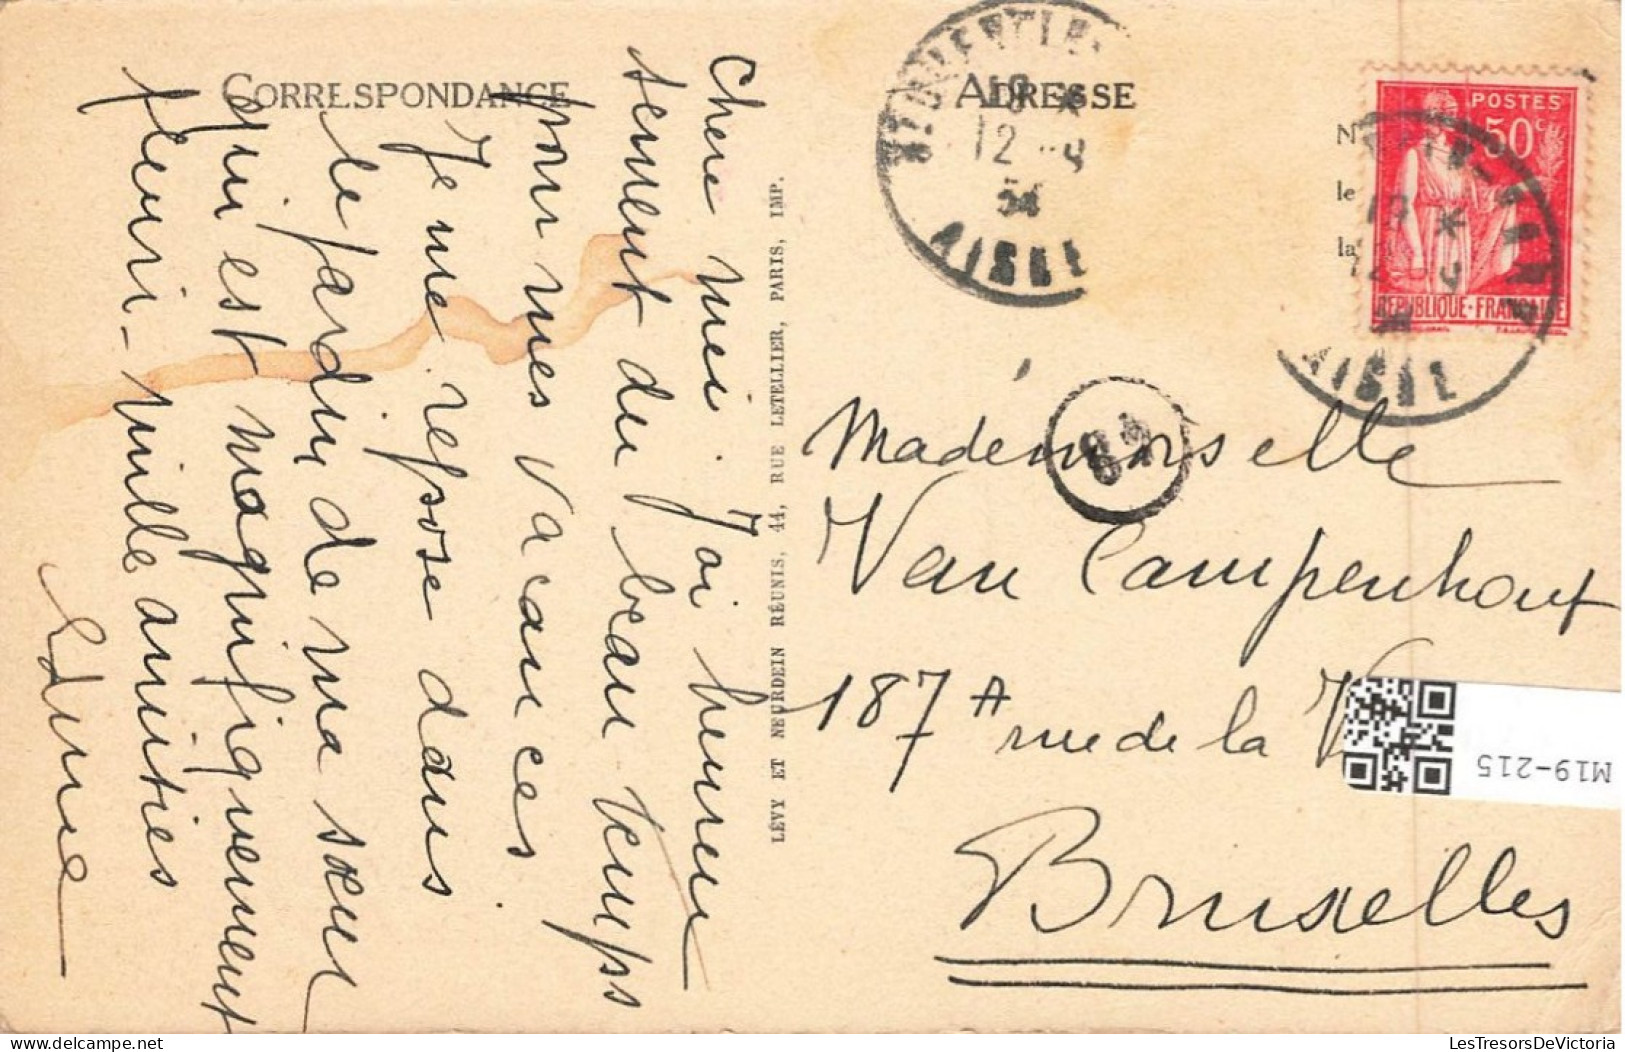 CORRESPONDANCE
Chère mei J'ai heureu
sement du beau temps
pour mes vacances
Je me repose dans
le jardin de ma sœur
qui est magnifiquement
fleuri - mille amitiés
Edmée
LÉVY ET NEURDEIN RÉUNIS, 44, RUE LETELLIER, PARIS, IMP.
ADRESSE
ST QUENTIN
12 - 9
34
AISNE
POSTES
50c
REPUBLIQUE·FRANÇAISE
12 - 9
AISNE
N
le
la
Mademoiselle
Van Campenhout
187 A rue de la V
Bruxelles
M19-215
LesTresorsDeVictoria